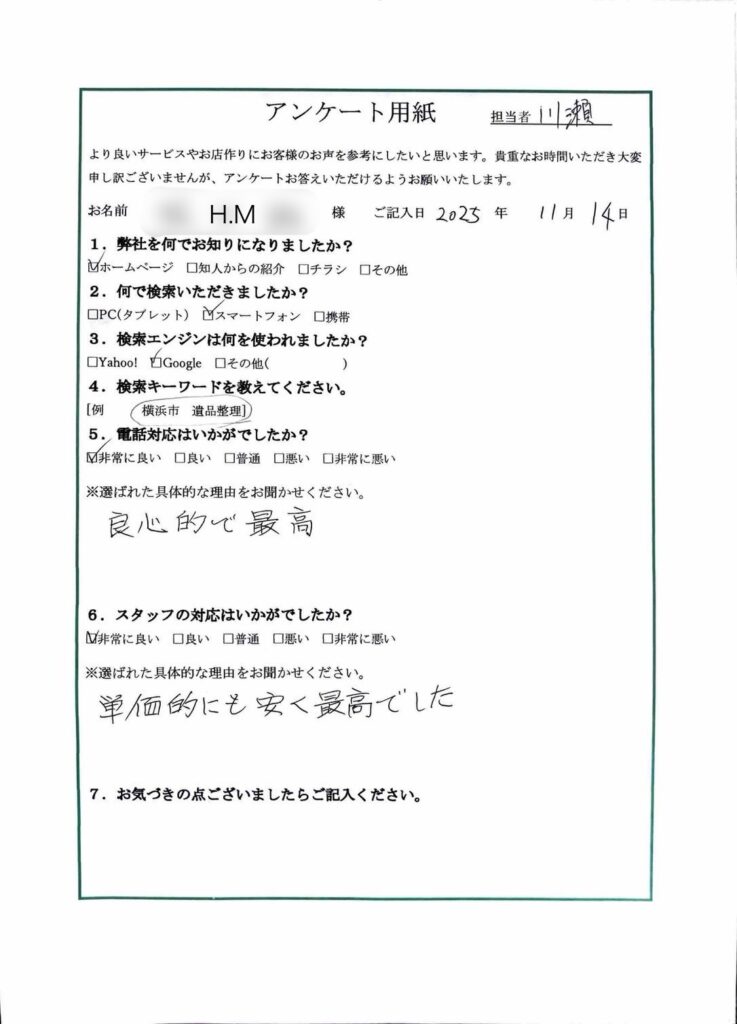 アンケート用紙 担当者 川瀬
より良いサービスやお店作りにお客様のお声を参考にしたいと思います。貴重なお時間いただき大変
申し訳ございませんが、アンケートお答えいただけるようお願いいたします。
お名前 H.M 様 ご記入日 2025 年 11 月 14 日
1．弊社を何でお知りになりましたか？
☑ホームページ □知人からの紹介 □チラシ □その他
2．何で検索いただきましたか？
□PC(タブレット) ☑スマートフォン □携帯
3．検索エンジンは何を使われましたか？
□Yahoo! ☑Google □その他( )
4．検索キーワードを教えてください。
[例 横浜市 遺品整理]
5．電話対応はいかがでしたか？
☑非常に良い □良い □普通 □悪い □非常に悪い
※選ばれた具体的な理由をお聞かせください。
良心的で最高
6．スタッフの対応はいかがでしたか？
☑非常に良い □良い □普通 □悪い □非常に悪い
※選ばれた具体的な理由をお聞かせください。
単価的にも安く最高でした
7．お気づきの点ございましたらご記入ください。